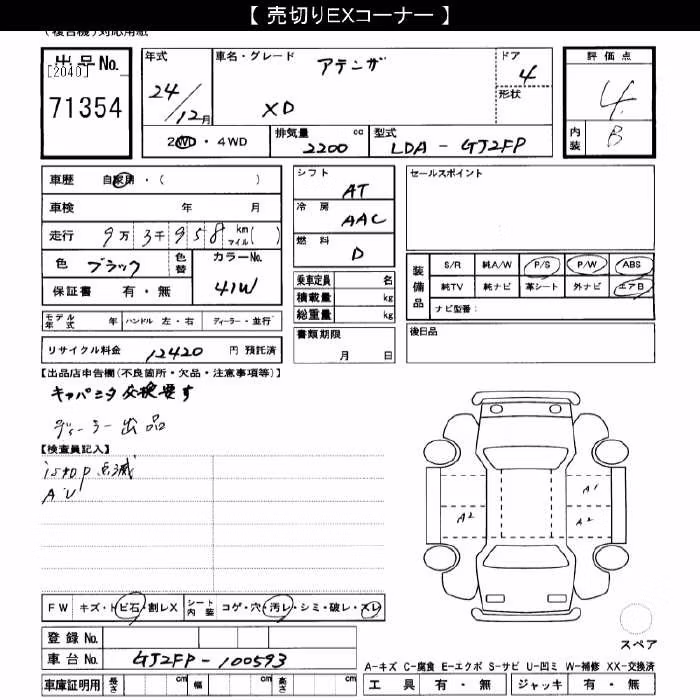 【 売切りEXコーナー 】
(複合機)対応用紙
出品No. 年式 車名・グレード アテンザ ドア 4 評価点
[2040]
71354 24/12月 XD 形状 4
2WD・4WD 排気量 2200 cc 型式 LDA - GJ2FP 内装 B
車歴 自家用・( ) シフト AT セールスポイント
車検 年 月 冷房 AAC
走行 9万3千958 km マイル( ) 燃料 D
色 ブラック 色替 カラーNo. 41W 装備品 S/R 純A/W P/S P/W ABS
保証書 有・無 乗車定員 名 純TV 純ナビ 革シート 外ナビ エアB
積載量 kg ナビ型番:
モデル年式 年 ハンドル 左・右 ディーラー・並行 総重量 kg
リサイクル料金 12420 円 預託済 書類期限 年 月 日 後日品
【出品店申告欄(不良箇所・欠品・注意事項等)】
キャパシタ交換要す
ディーラー出品
【検査員記入】
istop 点滅
AU
A1
A2 A2
FW キズ・トビ石・割レX シート内装 コゲ・穴・汚レ・シミ・破レ・スレ
登録No.
車台No. GJ2FP-100593 スペア
A-キズ C-腐食 E-エクボ S-サビ U-凹ミ W-補修 XX-交換済
車庫証明用 長さ cm 幅 cm 高さ cm 工具 有・無 ジャッキ 有・無